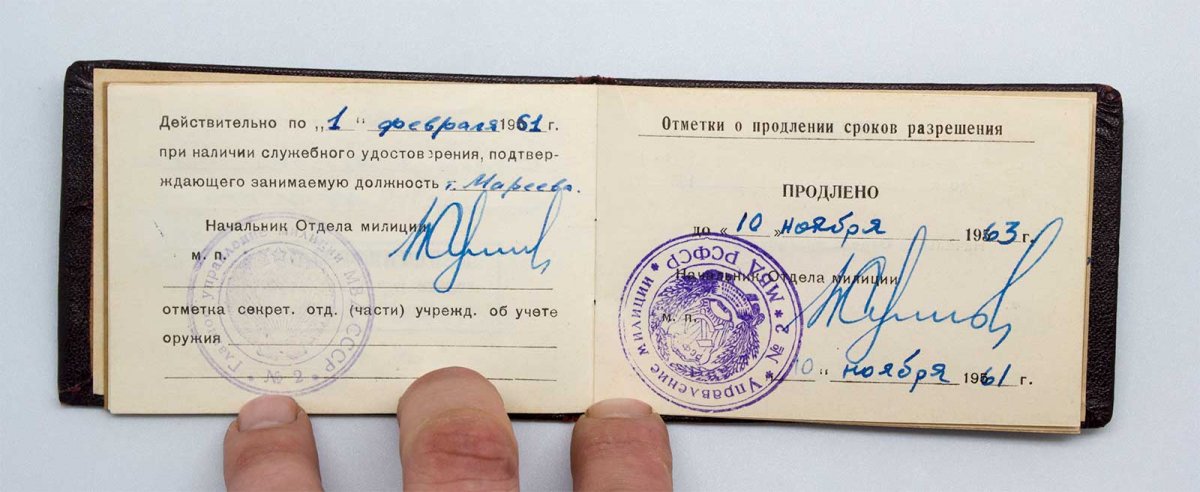 Действительно по „1“ февраля 1961 г.
при наличии служебного удостоверения, подтвер-
ждающего занимаемую должность т. Мареева.
Начальник Отдела милиции
м. п.
отметка секрет. отд. (части) учрежд. об учете
оружия
Главное управление милиции МВД СССР
* № 2 *
Отметки о продлении сроков разрешения
ПРОДЛЕНО
до «10» ноября 1963 г.
Начальник Отдела милиции
м. п.
10 “ ноября 1961 г.
* Управление милиции * МВД РСФСР * № 2